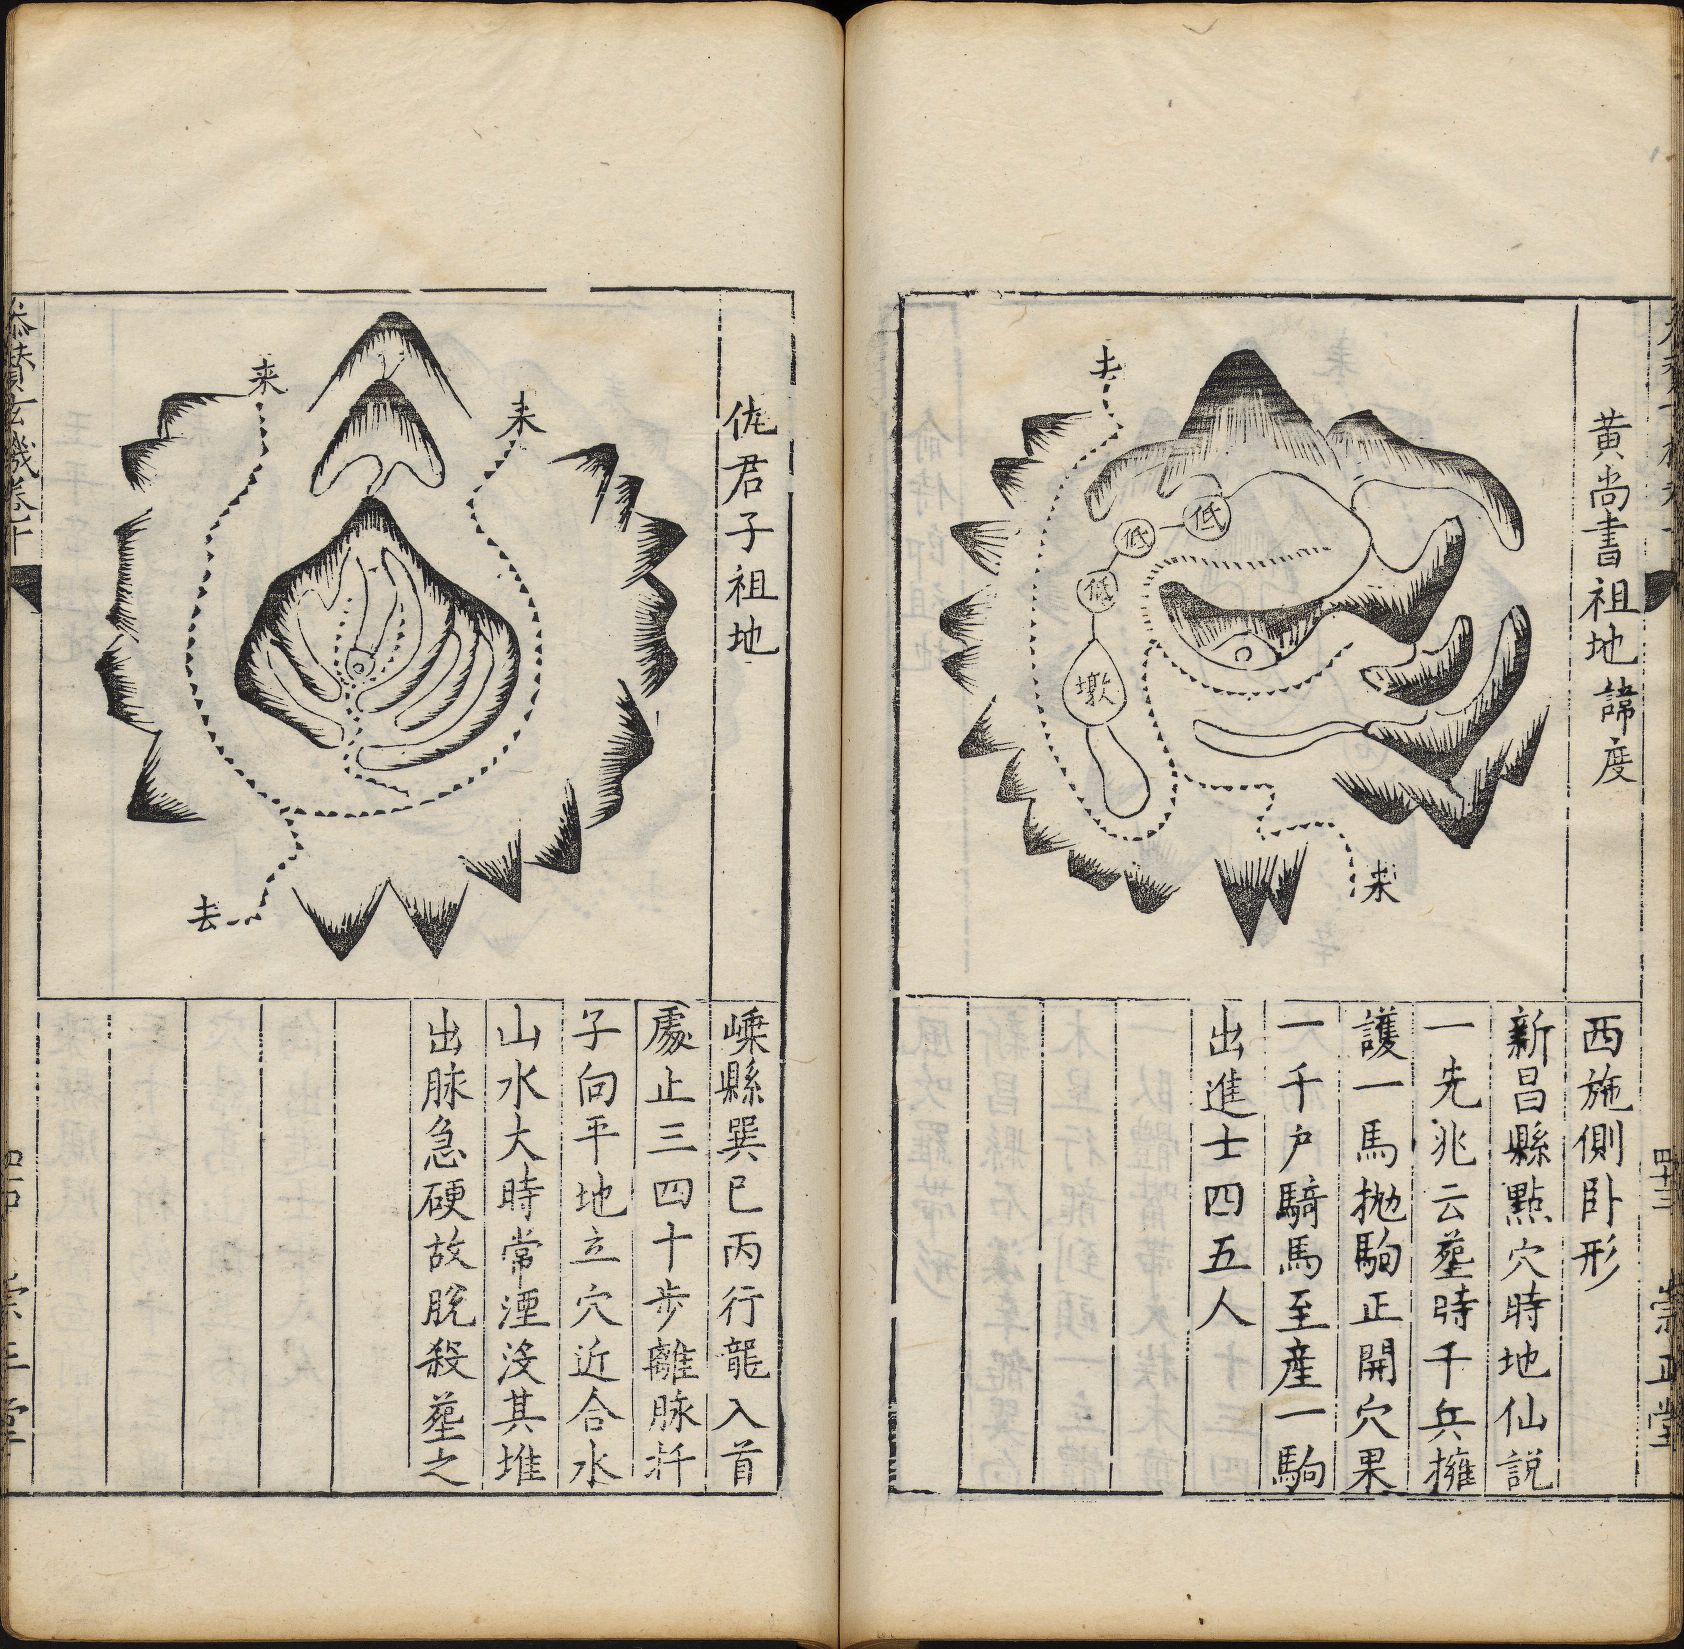 黃尚書祖地諱度
去
低
低
低
墩
来
西施側卧形
新昌縣點穴時地仙説
一先兆云塟時千兵擁
護一馬拋駒正開穴果
一千户騎馬至産一駒
出進士四五人
四十三
崇正堂
佐君子祖地
来
来
去
嵊縣巽巳丙行龍入首
處止三四十步離脉扦
子向平地立穴近合水
山水大時常湮沒其堆
出脉急硬故脫殺塟之